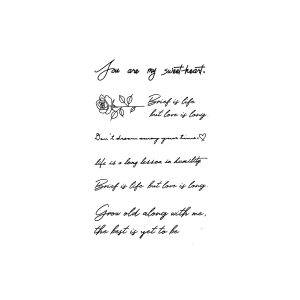 You are my sweet-heart.
Brief is life
but love is long
Don't dream away your time.
life is a long lesson in humility
Brief is life but love is long
Grow old along with me,
the best is yet to be